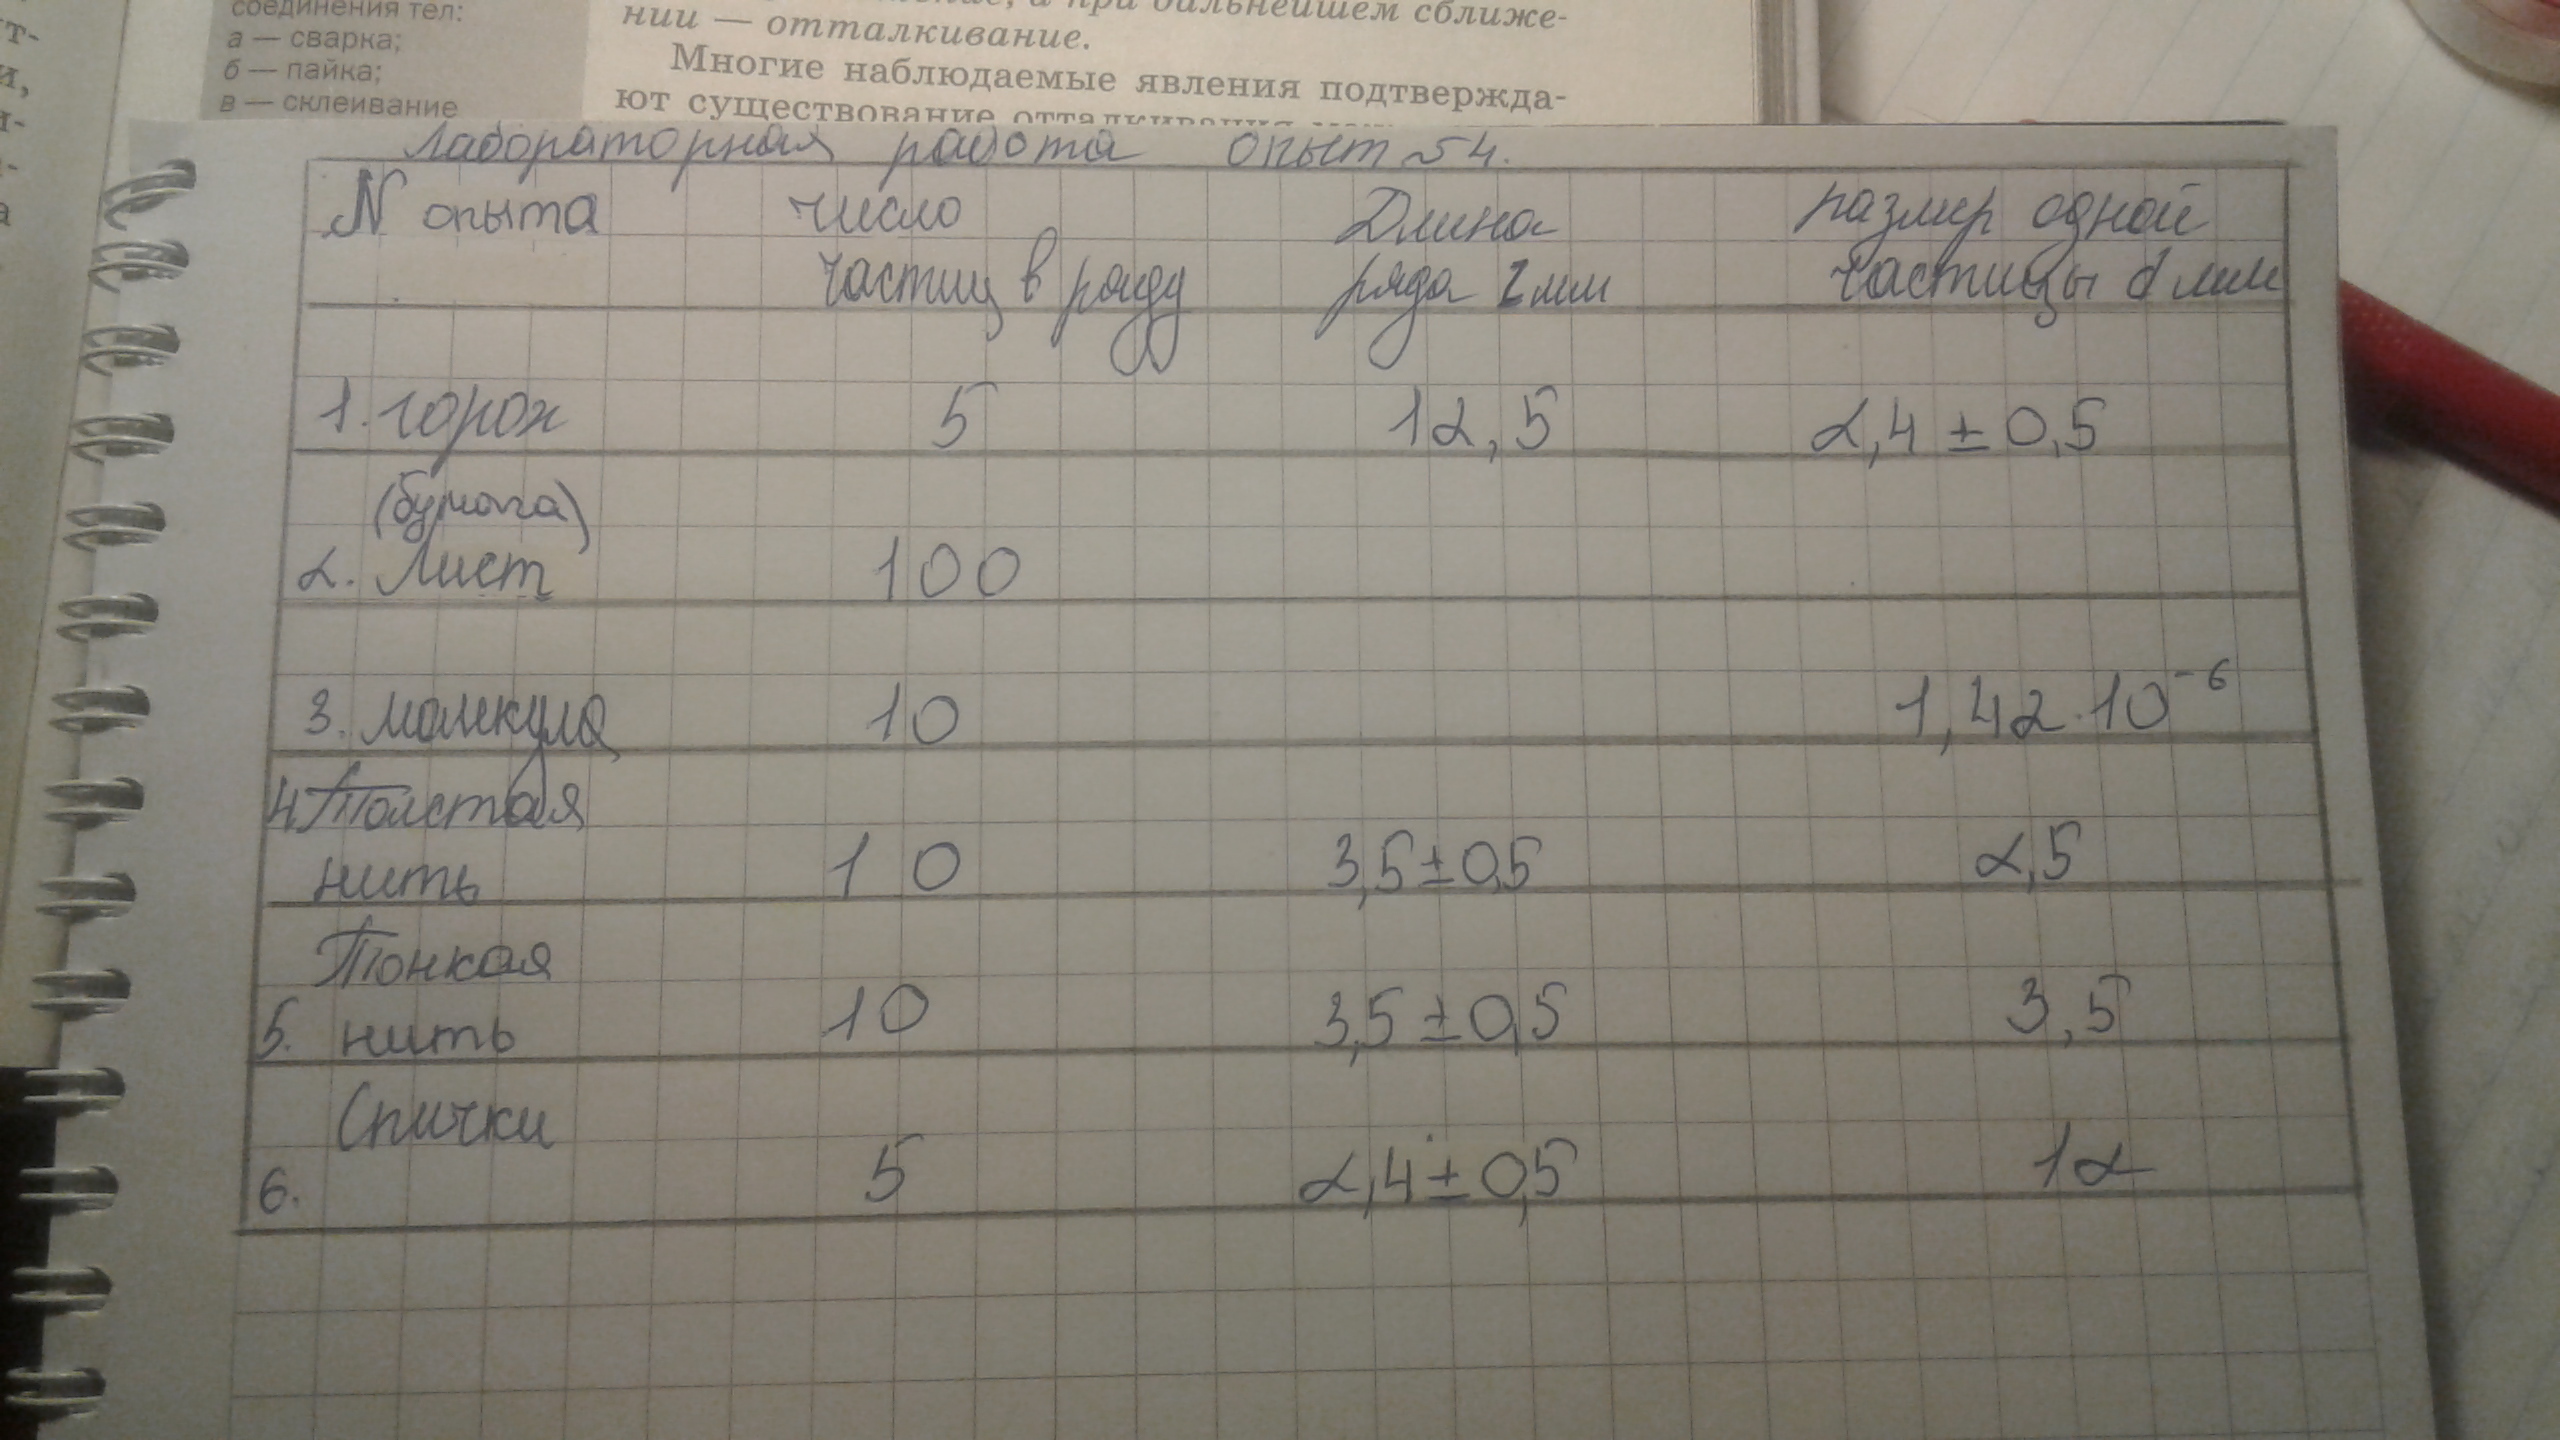 соединения тел:
а — сварка;
б — пайка;
в — склеивание
а при дальнейшем сближе-
нии — отталкивание.
Многие наблюдаемые явления подтвержда-
ют существование отталкивания
Лабораторная работа опыт №4.
N опыта число Длина размер одной
частиц в ряду ряда l мм частицы d мм
1. горох 5 12,5 2,4 ± 0,5
(бумага)
2. Лист 100
3. молекула 10 1,42·10⁻⁶
4. Толстая
нить 10 3,5 ± 0,5 2,5
Тонкая
5. нить 10 3,5 ± 0,5 3,5
Спички
6. 5 2,4 ± 0,5 12